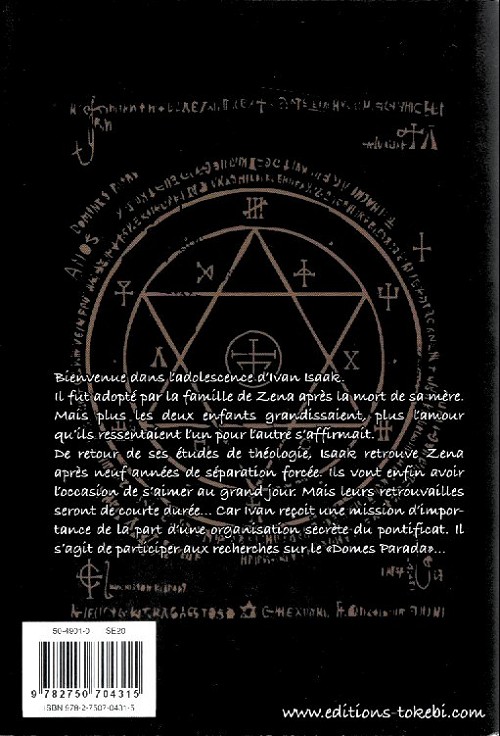 Bienvenue dans l'adolescence d'Ivan Isaak.
Il fut adopté par la famille de Zena après la mort de sa mère.
Mais plus les deux enfants grandissaient, plus l'amour
qu'ils ressentaient l'un pour l'autre s'affirmait.
De retour de ses études de théologie, Isaak retrouve Zena
après neuf années de séparation forcée. Ils vont enfin avoir
l'occasion de s'aimer au grand jour. Mais leurs retrouvailles
seront de courte durée... Car Ivan reçoit une mission d'impor-
tance de la part d'une organisation secrète du pontificat. Il
s'agit de participer aux recherches sur le «Domes Parada»...
50-4901-0 SE20
9 782750 704315
ISBN 978-2-7507-0431-5
www.editions-tokebi.com